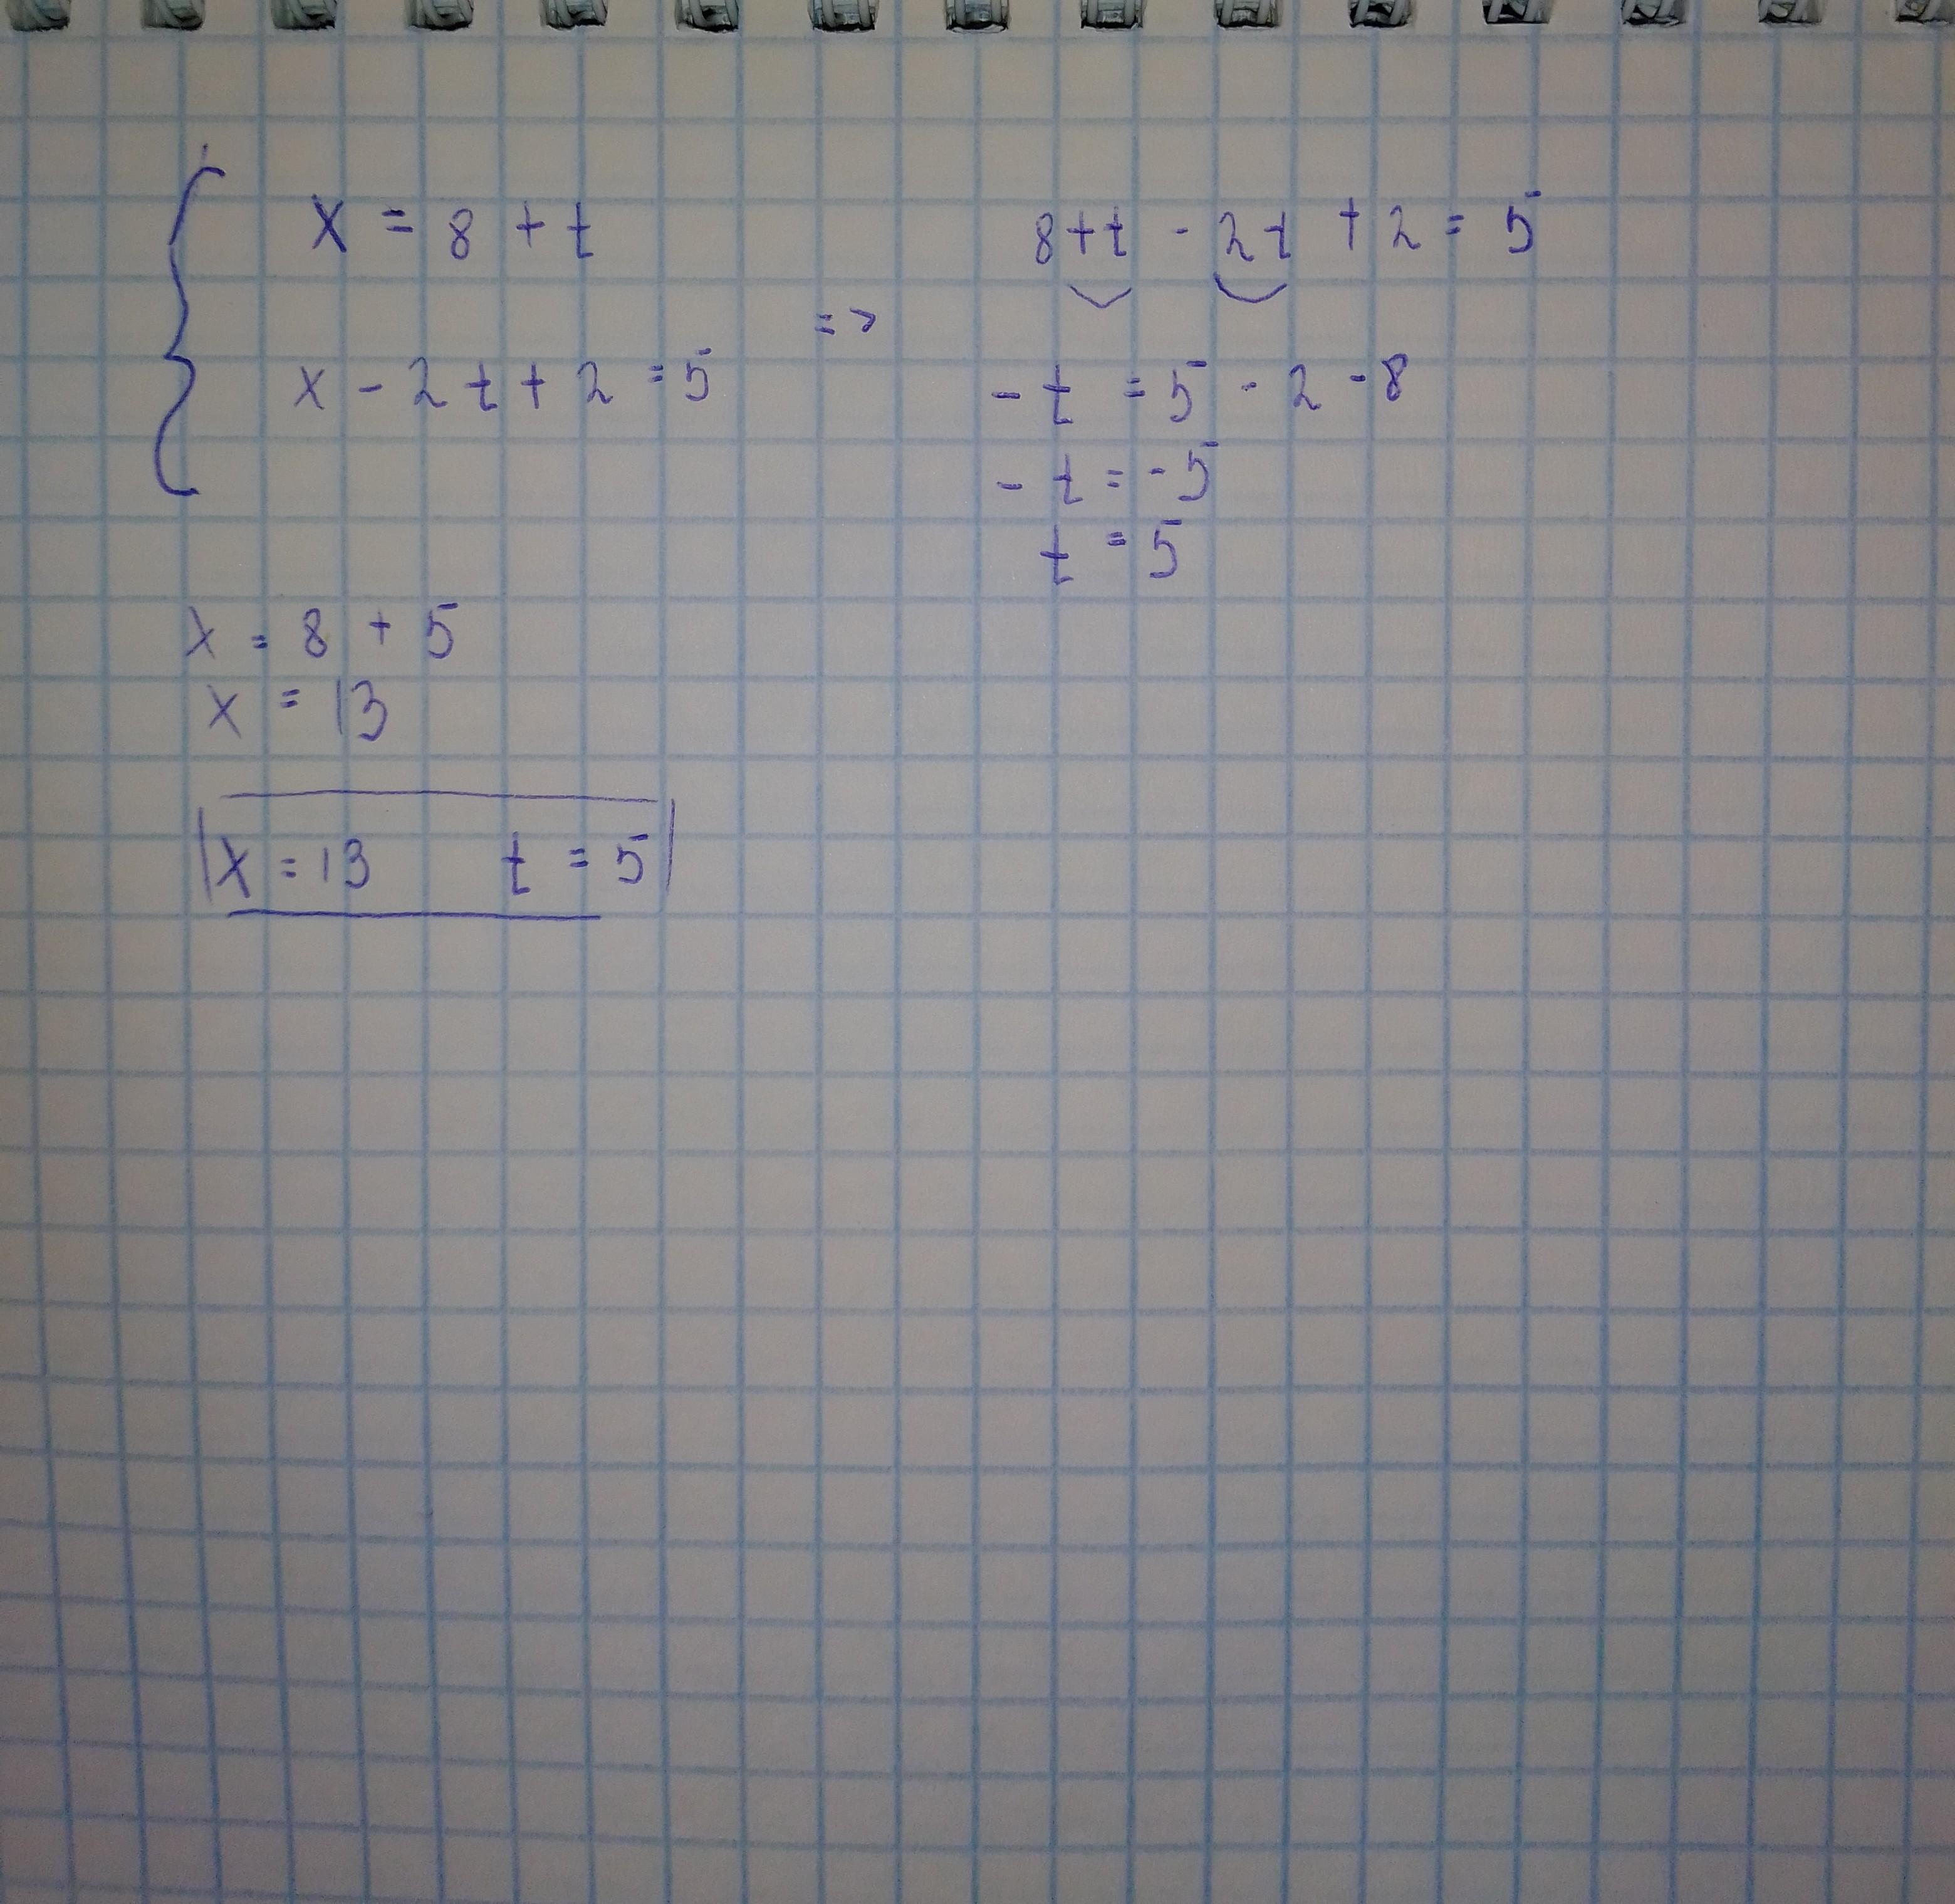 x = 8 + t
x - 2t + 2 = 5
=>
8 + t - 2t + 2 = 5
- t = 5 - 2 - 8
- t = - 5
t = 5
x = 8 + 5
x = 13
x = 13 t = 5